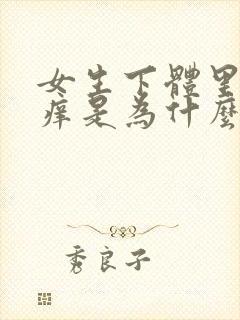 女生下體里
痒是為什麼
秀良子